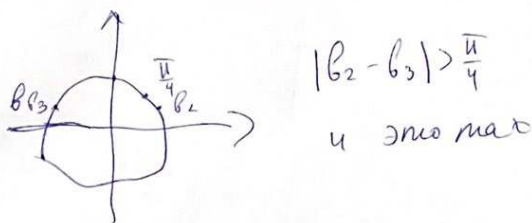 π/4
b₂
|b₂ - b₃| > π/4
и это max